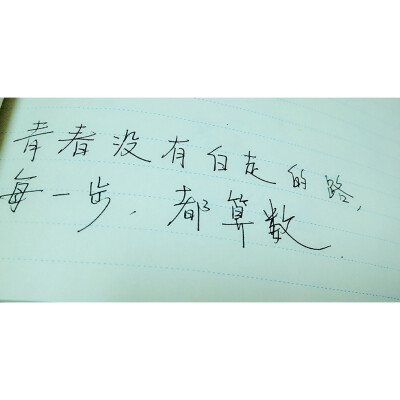 青春没有白走的路,
每一步,都算数